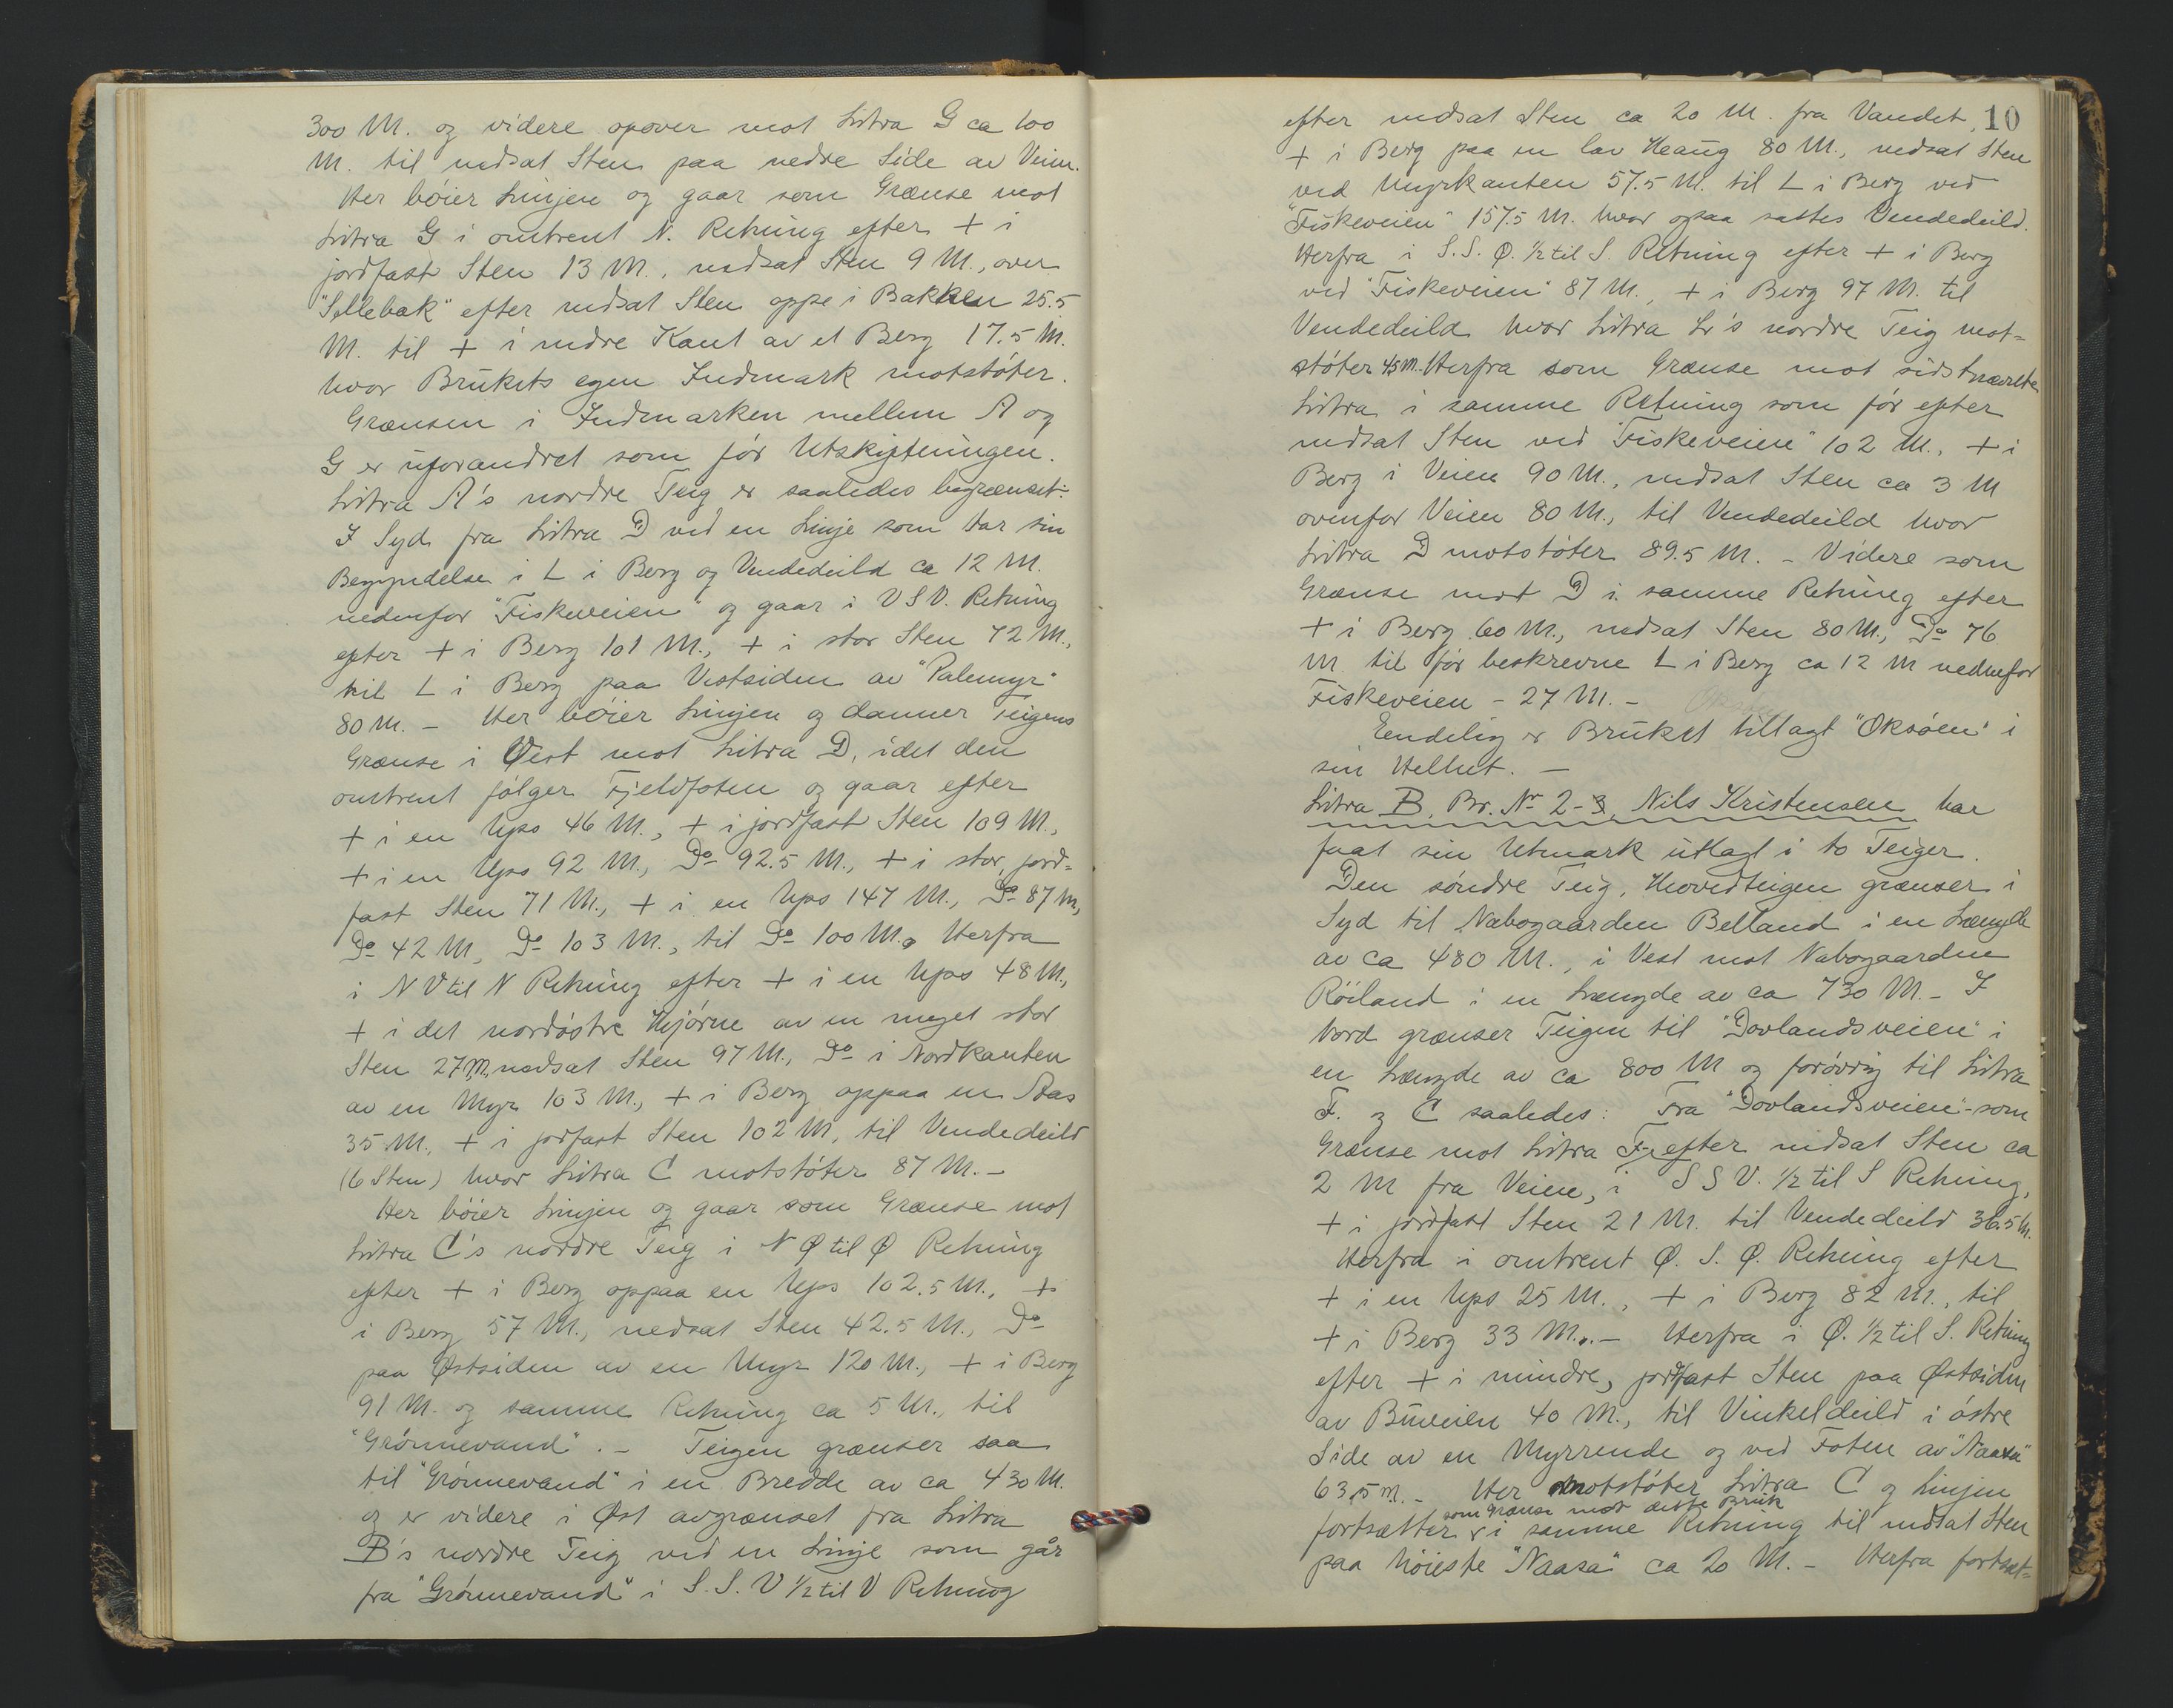 300 M. og videre opover mot Litra G ca 100
M. til nedsat Sten paa nedre Side av Veien.
Her bøier Linjen og gaar som Grænse mot
Litra G i omtrent N. Retning efter + i
jordfast Sten 13 M., nedsat Sten 9 M., over
"Sellebæk" efter nedsat Sten oppe i Bakken 25.5
M. til + i nedre Kant av et Berg 17.5 M.
hvor Brukets egen Indmark motstøter.
Grænsen i Indmarken mellem A og
G er uforandret som før Utskiftningen.
Litra A's nordre Teig er saaledes begrænset:
I Syd fra Litra D ved en Linje som tar sin
Begyndelse i L i Berg og Vendedeild ca 12 M.
nedenfor "Fiskeveien" og gaar i V S V. Retning
efter + i Berg 101 M., + i stor Sten 72 M.,
til L i Berg paa Vestsiden av "Palemyr"
80 M. – Her bøier Linjen og danner Teigens
Grænse i Vest mot Litra D, idet den
omtrent følger Fjeldfoten og gaar efter
+ i en Ups 46 M., + i jordfast Sten 109 M.,
+ i en Ups 92 M., Do 92.5 M., + i stor, jord=
fast Sten 71 M., + i en Ups 147 M., Do 87 M,
Do 42 M, Do 103 M., til Do 100 M. Herfra
i N V til N Retning efter + i en Ups 48 M.,
+ i det nordøstre Hjørne av en meget stor
Sten 27 M, nedsat Sten 97 M., Do i Nordkanten
av en Myr 103 M., + i Berg oppaa en Aas
35 M., + i jorfast Sten 102 M, til Vendedeild
(6 Sten) hvor Litra C motstøter 87 M. –
Her bøier Linjen og gaar som Grænse mot
Litra C's nordre Teig i N Ø til Ø Retning
efter + i Berg oppaa en Ups 102.5 M., +
i Berg 57 M., nedsat Sten 42.5 M., Do
paa Østsiden av en Myr 120 M., + i Berg
91 M. og samme Retning ca 5 M., til
"Grønnevand". – Teigen grænser saa
til "Grønnevand" i en Bredde av ca 430 M.
og er videre i Øst avgrænset fra Litra
B's nordre Teig ved en Linje som går
fra "Grønnevand" i S. S. V 1/2 til V Retning
10
efter nedsat Sten ca 20 M. fra Vandet,
+ i Berg paa en lav Heaug 80 M., nedsat Sten
ved Myrkanten 57.5 M. til L i Berg ved
"Fiskeveien" 157.5 M. hvor opaa sattes Vendedeild.
Herfra i S. S. Ø. 1/2 til S. Retning efter + i Berg
ved "Fiskeveien" 87 M., + i Berg 97 M. til
Vendedeild hvor Litra Lr's nordre Teig mot=
støter 45 M. Herfra som Grænse mot sidstnævnte
Litra i samme Retning som før efter
nedsat Sten ved "Fiskeveien" 102 M., + i
Berg i Veien 90 M., nedsat Sten ca 3 M
ovenfor Veien 80 M., til Vendedeild hvor
Litra D motstøter 89.5 M. – Videre som
Grænse mot D i samme Retning efter
+ i Berg 60 M., nedsat Sten 80 M., Do 76
M. til før beskrevne L i Berg ca 12 M nedenfor
Fiskeveien – 27 M. –
Eendelig er Bruket tillagt "Oksøen" i
sin Helhet. –
Litra B, Br. Nr 2-3, Nils Kristensen har
faat sin Utmark utlagt i to Teiger.
Den søndre Teig, Hovedteigen grænser i
Syd til Nabogaarden Belland i en Længde
av ca 480 M., i Vest mot Nabogaarden
Röiland i en Længde av ca 730 M. – I
Nord grænser Teigen til "Dovlandsveien" i
en Længde av ca 800 M og forøvrig til Litra
F. og C saaledes: Fra "Dovlandsveien" som
Grænse mot Litra F, efter nedsat Sten ca
2 M fra Veien, i S S V. 1/2 til S Retning,
+ i jordfast Sten 21 M. til Vendedeild 36.5 M.
Herfra i omtrent Ø. S. Ø. Retning efter
+ i en Ups 25 M., + i Berg 82 M., til
+ i Berg 33 M. – Herfra i Ø. 1/2 til S. Retning
efter + i mindre, jordfast Sten paa Østsiden
av Buveien 40 M., til Vinkeldeild i østre
Side av en Myrrende og ved Foten av "Naasa"
63.5 m. – Her motstøter Litra C og Linjen
som Grænse mot dette Bruk
fortsætter i samme Retning til nedsat Sten
paa høieste "Naasa" ca 20 M. – Herfra fortsæt=